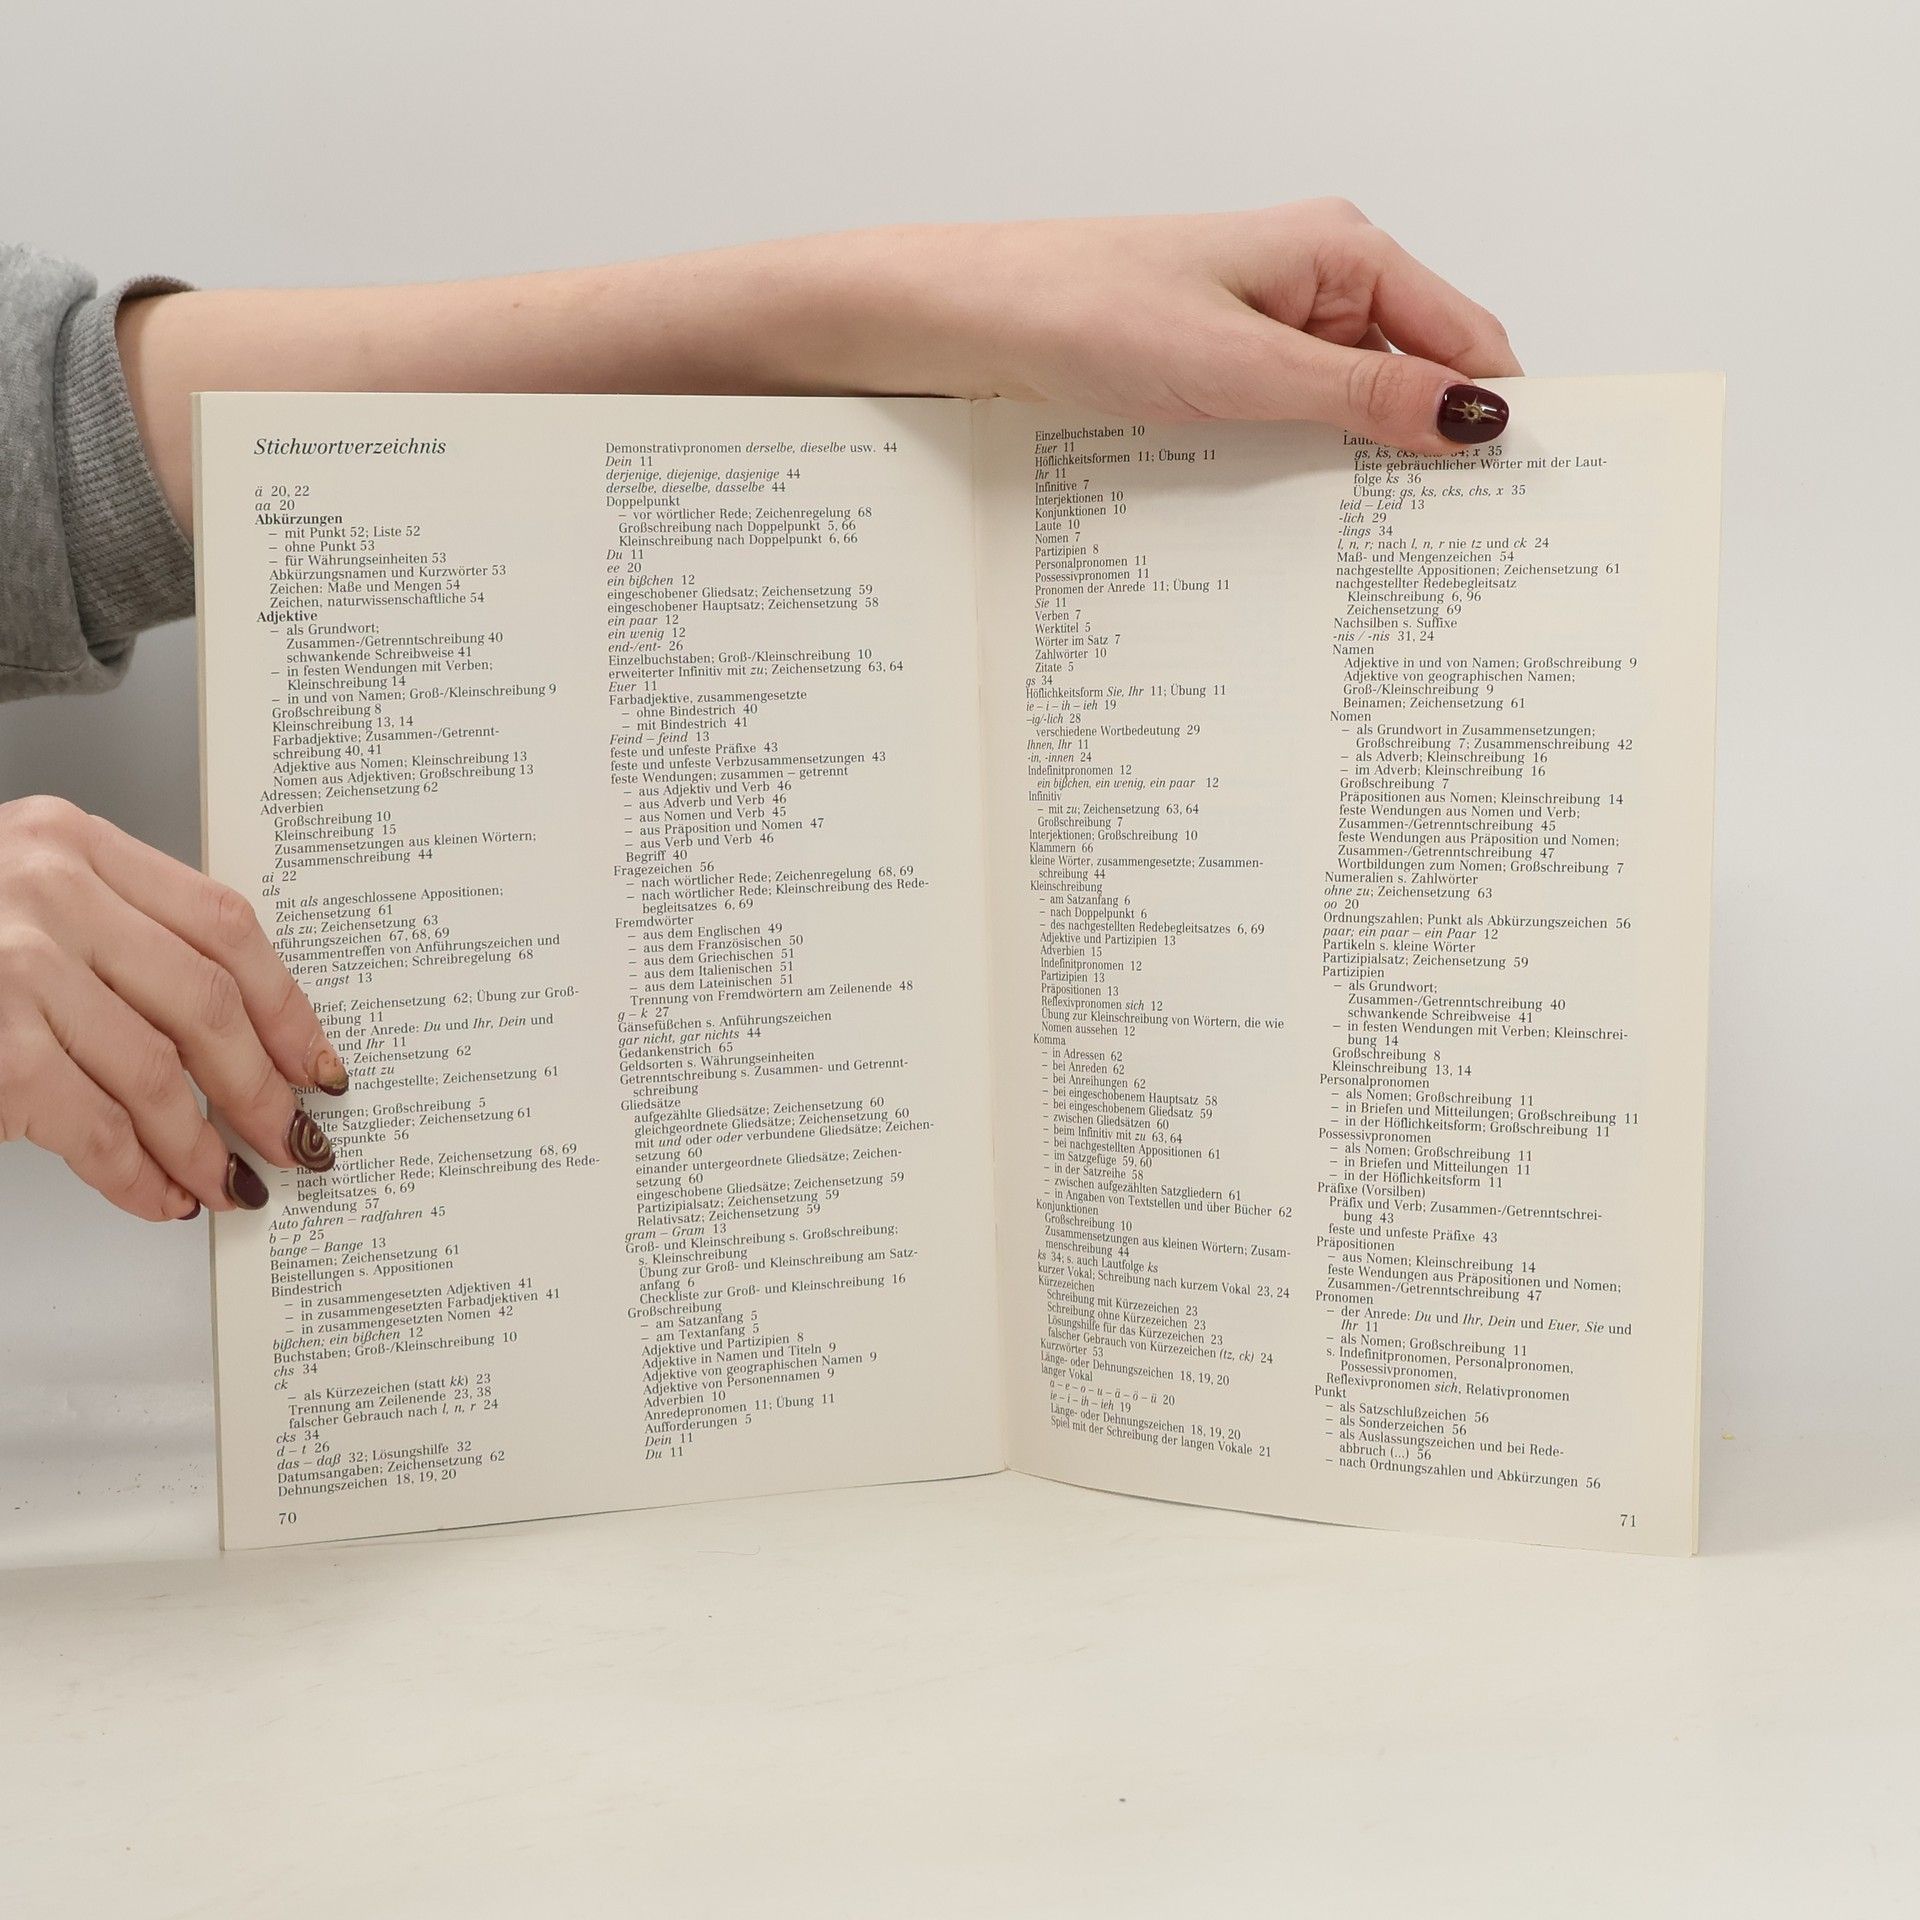 Stichwortverzeichnis
ä 20, 22
aa 20
Abkürzungen
– mit Punkt 52; Liste 52
– ohne Punkt 53
– für Währungseinheiten 53
Abkürzungsnamen und Kurzwörter 53
Zeichen: Maße und Mengen 54
Zeichen, naturwissenschaftliche 54
Adjektive
– als Grundwort;
Zusammen-/Getrenntschreibung 40
schwankende Schreibweise 41
– in festen Wendungen mit Verben;
Kleinschreibung 14
– in und von Namen; Groß-/Kleinschreibung 9
Großschreibung 8
Kleinschreibung 13, 14
Farbadjektive; Zusammen-/Getrennt-
schreibung 40, 41
Adjektive aus Nomen; Kleinschreibung 13
Nomen aus Adjektiven; Großschreibung 13
Adressen; Zeichensetzung 62
Adverbien
Großschreibung 10
Kleinschreibung 15
Zusammensetzungen aus kleinen Wörtern;
Zusammenschreibung 44
ai 22
als
mit als angeschlossene Appositionen;
Zeichensetzung 61
als zu; Zeichensetzung 63
nführungszeichen 67, 68, 69
Zusammentreffen von Anführungszeichen und
deren Satzzeichen; Schreibregelung 68
– angst 13
Brief; Zeichensetzung 62; Übung zur Groß-
eibung 11
en der Anrede: Du und Ihr, Dein und
und Ihr 11
; Zeichensetzung 62
statt zu
nachgestellte; Zeichensetzung 61
4
derungen; Großschreibung 5
lte Satzglieder; Zeichensetzung 61
gspunkte 56
chen
– wörtlicher Rede, Zeichensetzung 68, 69
– nach wörtlicher Rede; Kleinschreibung des Rede-
begleitsatzes 6, 69
Anwendung 57
Auto fahren – radfahren 45
b – p 25
bange – Bange 13
Beinamen; Zeichensetzung 61
Beistellungen s. Appositionen
Bindestrich
– in zusammengesetzten Adjektiven 41
– in zusammengesetzten Farbadjektiven 41
– in zusammengesetzten Nomen 42
bißchen; ein bißchen 12
Buchstaben; Groß-/Kleinschreibung 10
chs 34
ck
– als Kürzezeichen (statt kk) 23
Trennung am Zeilenende 23, 38
falscher Gebrauch nach l, n, r 24
cks 34
d – t 26
das – daß 32; Lösungshilfe 32
Datumsangaben; Zeichensetzung 62
Dehnungszeichen 18, 19, 20
70
Demonstrativpronomen derselbe, dieselbe usw. 44
Dein 11
derjenige, diejenige, dasjenige 44
derselbe, dieselbe, dasselbe 44
Doppelpunkt
– vor wörtlicher Rede; Zeichenregelung 68
Großschreibung nach Doppelpunkt 5, 66
Kleinschreibung nach Doppelpunkt 6, 66
Du 11
ee 20
ein bißchen 12
eingeschobener Gliedsatz; Zeichensetzung 59
eingeschobener Hauptsatz; Zeichensetzung 58
ein paar 12
ein wenig 12
end-/ent- 26
Einzelbuchstaben; Groß-/Kleinschreibung 10
erweiterter Infinitiv mit zu; Zeichensetzung 63, 64
Euer 11
Farbadjektive, zusammengesetzte
– ohne Bindestrich 40
– mit Bindestrich 41
Feind – feind 13
feste und unfeste Präfixe 43
feste und unfeste Verbzusammensetzungen 43
feste Wendungen; zusammen – getrennt
– aus Adjektiv und Verb 46
– aus Adverb und Verb 46
– aus Nomen und Verb 45
– aus Präposition und Nomen 47
– aus Verb und Verb 46
Begriff 40
Fragezeichen 56
– nach wörtlicher Rede; Zeichenregelung 68, 69
– nach wörtlicher Rede; Kleinschreibung des Rede-
begleitsatzes 6, 69
Fremdwörter
– aus dem Englischen 49
– aus dem Französischen 50
– aus dem Griechischen 51
– aus dem Italienischen 51
– aus dem Lateinischen 51
Trennung von Fremdwörtern am Zeilenende 48
g – k 27
Gänsefüßchen s. Anführungszeichen
gar nicht, gar nichts 44
Gedankenstrich 65
Geldsorten s. Währungseinheiten
Getrenntschreibung s. Zusammen- und Getrennt-
schreibung
Gliedsätze
aufgezählte Gliedsätze; Zeichensetzung 60
gleichgeordnete Gliedsätze; Zeichensetzung 60
mit und oder oder verbundene Gliedsätze; Zeichen-
setzung 60
einander untergeordnete Gliedsätze; Zeichen-
setzung 60
eingeschobene Gliedsätze; Zeichensetzung 59
Partizipialsatz; Zeichensetzung 59
Relativsatz; Zeichensetzung 59
gram – Gram 13
Groß- und Kleinschreibung s. Großschreibung;
s. Kleinschreibung
Übung zur Groß- und Kleinschreibung am Satz-
anfang 6
Checkliste zur Groß- und Kleinschreibung 16
Großschreibung
– am Satzanfang 5
– am Textanfang 5
Adjektive und Partizipien 8
Adjektive in Namen und Titeln 9
Adjektive von geographischen Namen 9
Adjektive von Personennamen 9
Adverbien 10
Anredepronomen 11; Übung 11
Aufforderungen 5
Dein 11
Du 11
Einzelbuchstaben 10
Euer 11
Höflichkeitsformen 11; Übung 11
Ihr 11
Infinitive 7
Interjektionen 10
Konjunktionen 10
Laute 10
Nomen 7
Partizipien 8
Personalpronomen 11
Possessivpronomen 11
Pronomen der Anrede 11; Übung 11
Sie 11
Verben 7
Werktitel 5
Wörter im Satz 7
Zahlwörter 10
Zitate 5
gs 34
Höflichkeitsform Sie, Ihr 11; Übung 11
ie – i – ih – ieh 19
–ig/-lich 28
verschiedene Wortbedeutung 29
Ihnen, Ihr 11
-in, -innen 24
Indefinitpronomen 12
ein bißchen, ein wenig, ein paar 12
Infinitiv
– mit zu; Zeichensetzung 63, 64
Großschreibung 7
Interjektionen; Großschreibung 10
Klammern 66
kleine Wörter, zusammengesetzte; Zusammen-
schreibung 44
Kleinschreibung
– am Satzanfang 6
– nach Doppelpunkt 6
– des nachgestellten Redebegleitsatzes 6, 69
Adjektive und Partizipien 13
Adverbien 15
Indefinitpronomen 12
Partizipien 13
Präpositionen 13
Reflexivpronomen sich 12
Übung zur Kleinschreibung von Wörtern, die wie
Nomen aussehen 12
Komma
– in Adressen 62
– bei Anreden 62
– bei Anreihungen 62
– bei eingeschobenem Hauptsatz 58
– bei eingeschobenem Gliedsatz 59
– zwischen Gliedsätzen 60
– beim Infinitiv mit zu 63, 64
– bei nachgestellten Appositionen 61
– im Satzgefüge 59, 60
– in der Satzreihe 58
– zwischen aufgezählten Satzgliedern 61
– in Angaben von Textstellen und über Bücher 62
Konjunktionen
Großschreibung 10
Zusammensetzungen aus kleinen Wörtern; Zusam-
menschreibung 44
ks 34; s. auch Lautfolge ks
kurzer Vokal; Schreibung nach kurzem Vokal 23, 24
Kürzezeichen
Schreibung mit Kürzezeichen 23
Schreibung ohne Kürzezeichen 23
Lösungshilfe für das Kürzezeichen 23
falscher Gebrauch von Kürzezeichen (tz, ck) 24
Kurzwörter 53
Länge- oder Dehnungszeichen 18, 19, 20
langer Vokal
a – e – o – u – ä – ö – ü 20
ie – i – ih – ieh 19
Länge- oder Dehnungszeichen 18, 19, 20
Spiel mit der Schreibung der langen Vokale 21
gs, ks, cks, 34; x 35
Liste gebräuchlicher Wörter mit der Laut-
folge ks 36
Übung: gs, ks, cks, chs, x 35
leid – Leid 13
-lich 29
-lings 34
l, n, r; nach l, n, r nie tz und ck 24
Maß- und Mengenzeichen 54
nachgestellte Appositionen; Zeichensetzung 61
nachgestellter Redebegleitsatz
Kleinschreibung 6, 96
Zeichensetzung 69
Nachsilben s. Suffixe
-nis / -nis 31, 24
Namen
Adjektive in und von Namen; Großschreibung 9
Adjektive von geographischen Namen;
Groß-/Kleinschreibung 9
Beinamen; Zeichensetzung 61
Nomen
– als Grundwort in Zusammensetzungen;
Großschreibung 7; Zusammenschreibung 42
– als Adverb; Kleinschreibung 16
– im Adverb; Kleinschreibung 16
Großschreibung 7
Präpositionen aus Nomen; Kleinschreibung 14
feste Wendungen aus Nomen und Verb;
Zusammen-/Getrenntschreibung 45
feste Wendungen aus Präposition und Nomen;
Zusammen-/Getrenntschreibung 47
Wortbildungen zum Nomen; Großschreibung 7
Numeralien s. Zahlwörter
ohne zu; Zeichensetzung 63
oo 20
Ordnungszahlen; Punkt als Abkürzungszeichen 56
paar; ein paar – ein Paar 12
Partikeln s. kleine Wörter
Partizipialsatz; Zeichensetzung 59
Partizipien
– als Grundwort;
Zusammen-/Getrenntschreibung 40
schwankende Schreibweise 41
– in festen Wendungen mit Verben; Kleinschrei-
bung 14
Großschreibung 8
Kleinschreibung 13, 14
Personalpronomen
– als Nomen; Großschreibung 11
– in Briefen und Mitteilungen; Großschreibung 11
– in der Höflichkeitsform; Großschreibung 11
Possessivpronomen
– als Nomen; Großschreibung 11
– in Briefen und Mitteilungen 11
– in der Höflichkeitsform 11
Präfixe (Vorsilben)
Präfix und Verb; Zusammen-/Getrenntschrei-
bung 43
feste und unfeste Präfixe 43
Präpositionen
– aus Nomen; Kleinschreibung 14
feste Wendungen aus Präpositionen und Nomen;
Zusammen-/Getrenntschreibung 47
Pronomen
– der Anrede: Du und Ihr, Dein und Euer, Sie und
Ihr 11
– als Nomen; Großschreibung 11
s. Indefinitpronomen, Personalpronomen,
Possessivpronomen,
Reflexivpronomen sich, Relativpronomen
Punkt
– als Satzschlußzeichen 56
– als Sonderzeichen 56
– als Auslassungszeichen und bei Rede-
abbruch (...) 56
– nach Ordnungszahlen und Abkürzungen 56
71